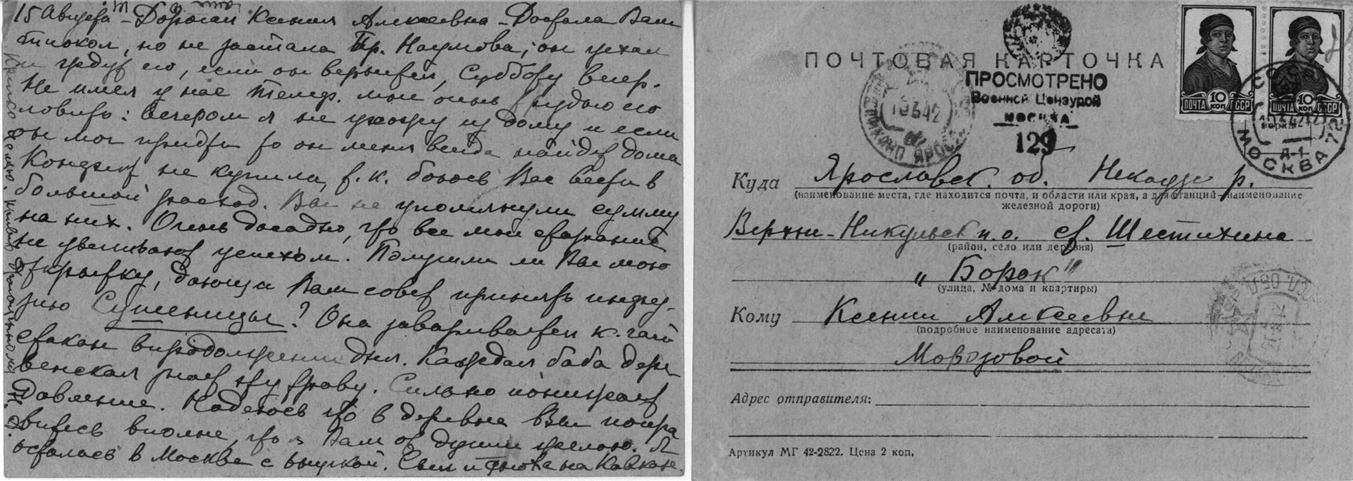 15 Августа - Дорогая Ксения Алексеевна - Достала Вам
тиокол, но не застала Пр. Наумова, он уехал
и треб его, если он вернется, Субботу вечер.
Не имея у нас телеф. мне очень трудно его
ловить: вечером я не ухожу из дому и если
бы мог придти то он меня всегда найдет дома
не купила, т.к. боюсь Вас ввести в
большой расход. Вы не упомянули сумму
на них. Очень досадно, что все мои старания
не увенчаются успехом. Получили ли Вы мою
открытку, дающую Вам совет принять
Сушеницы? Она заваривается к. чай
стакан в продолжении дня. Каждая баба дере
венская знает эту траву. Сильно понижает
давление. Надеюсь что в деревне Вы попра
витесь вполне, что Вам от души желаю. Я
осталась в Москве с внучкой. Сын и на Кавказе.
ПОЧТОВАЯ КАРТОЧКА
ПРОСМОТРЕНО
Военной Цензурой
МОСКВА
129
ПОЧТА 10 КОП СССР
ПОЧТА 10 КОП СССР
МОСКВА
Куда Ярославск. об. Некоузс р.
(наименование места, где находится почта, и области или края, а для станций наименование
железной дороги)
Верхне-Никульск п.о. ст. Шестихино
(район, село или деревня)
„Борок"
(улица, № дома и квартиры)
Кому Ксении Алексеевне
(подробное наименование адресата)
Морозовой
Адрес отправителя:
Артикул МГ 42-2822. Цена 2 коп.